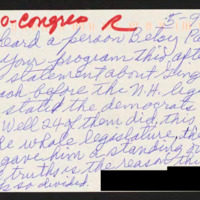 o-Congres R 5-9
eard a person Betsy Pa
your program this aft
statement about Ging
ook before the N.H. leg
stated the democrate
Well 24 of them did, this
he whole legislature, th
gave him a standing ov
truths is the reason thi
is so divided